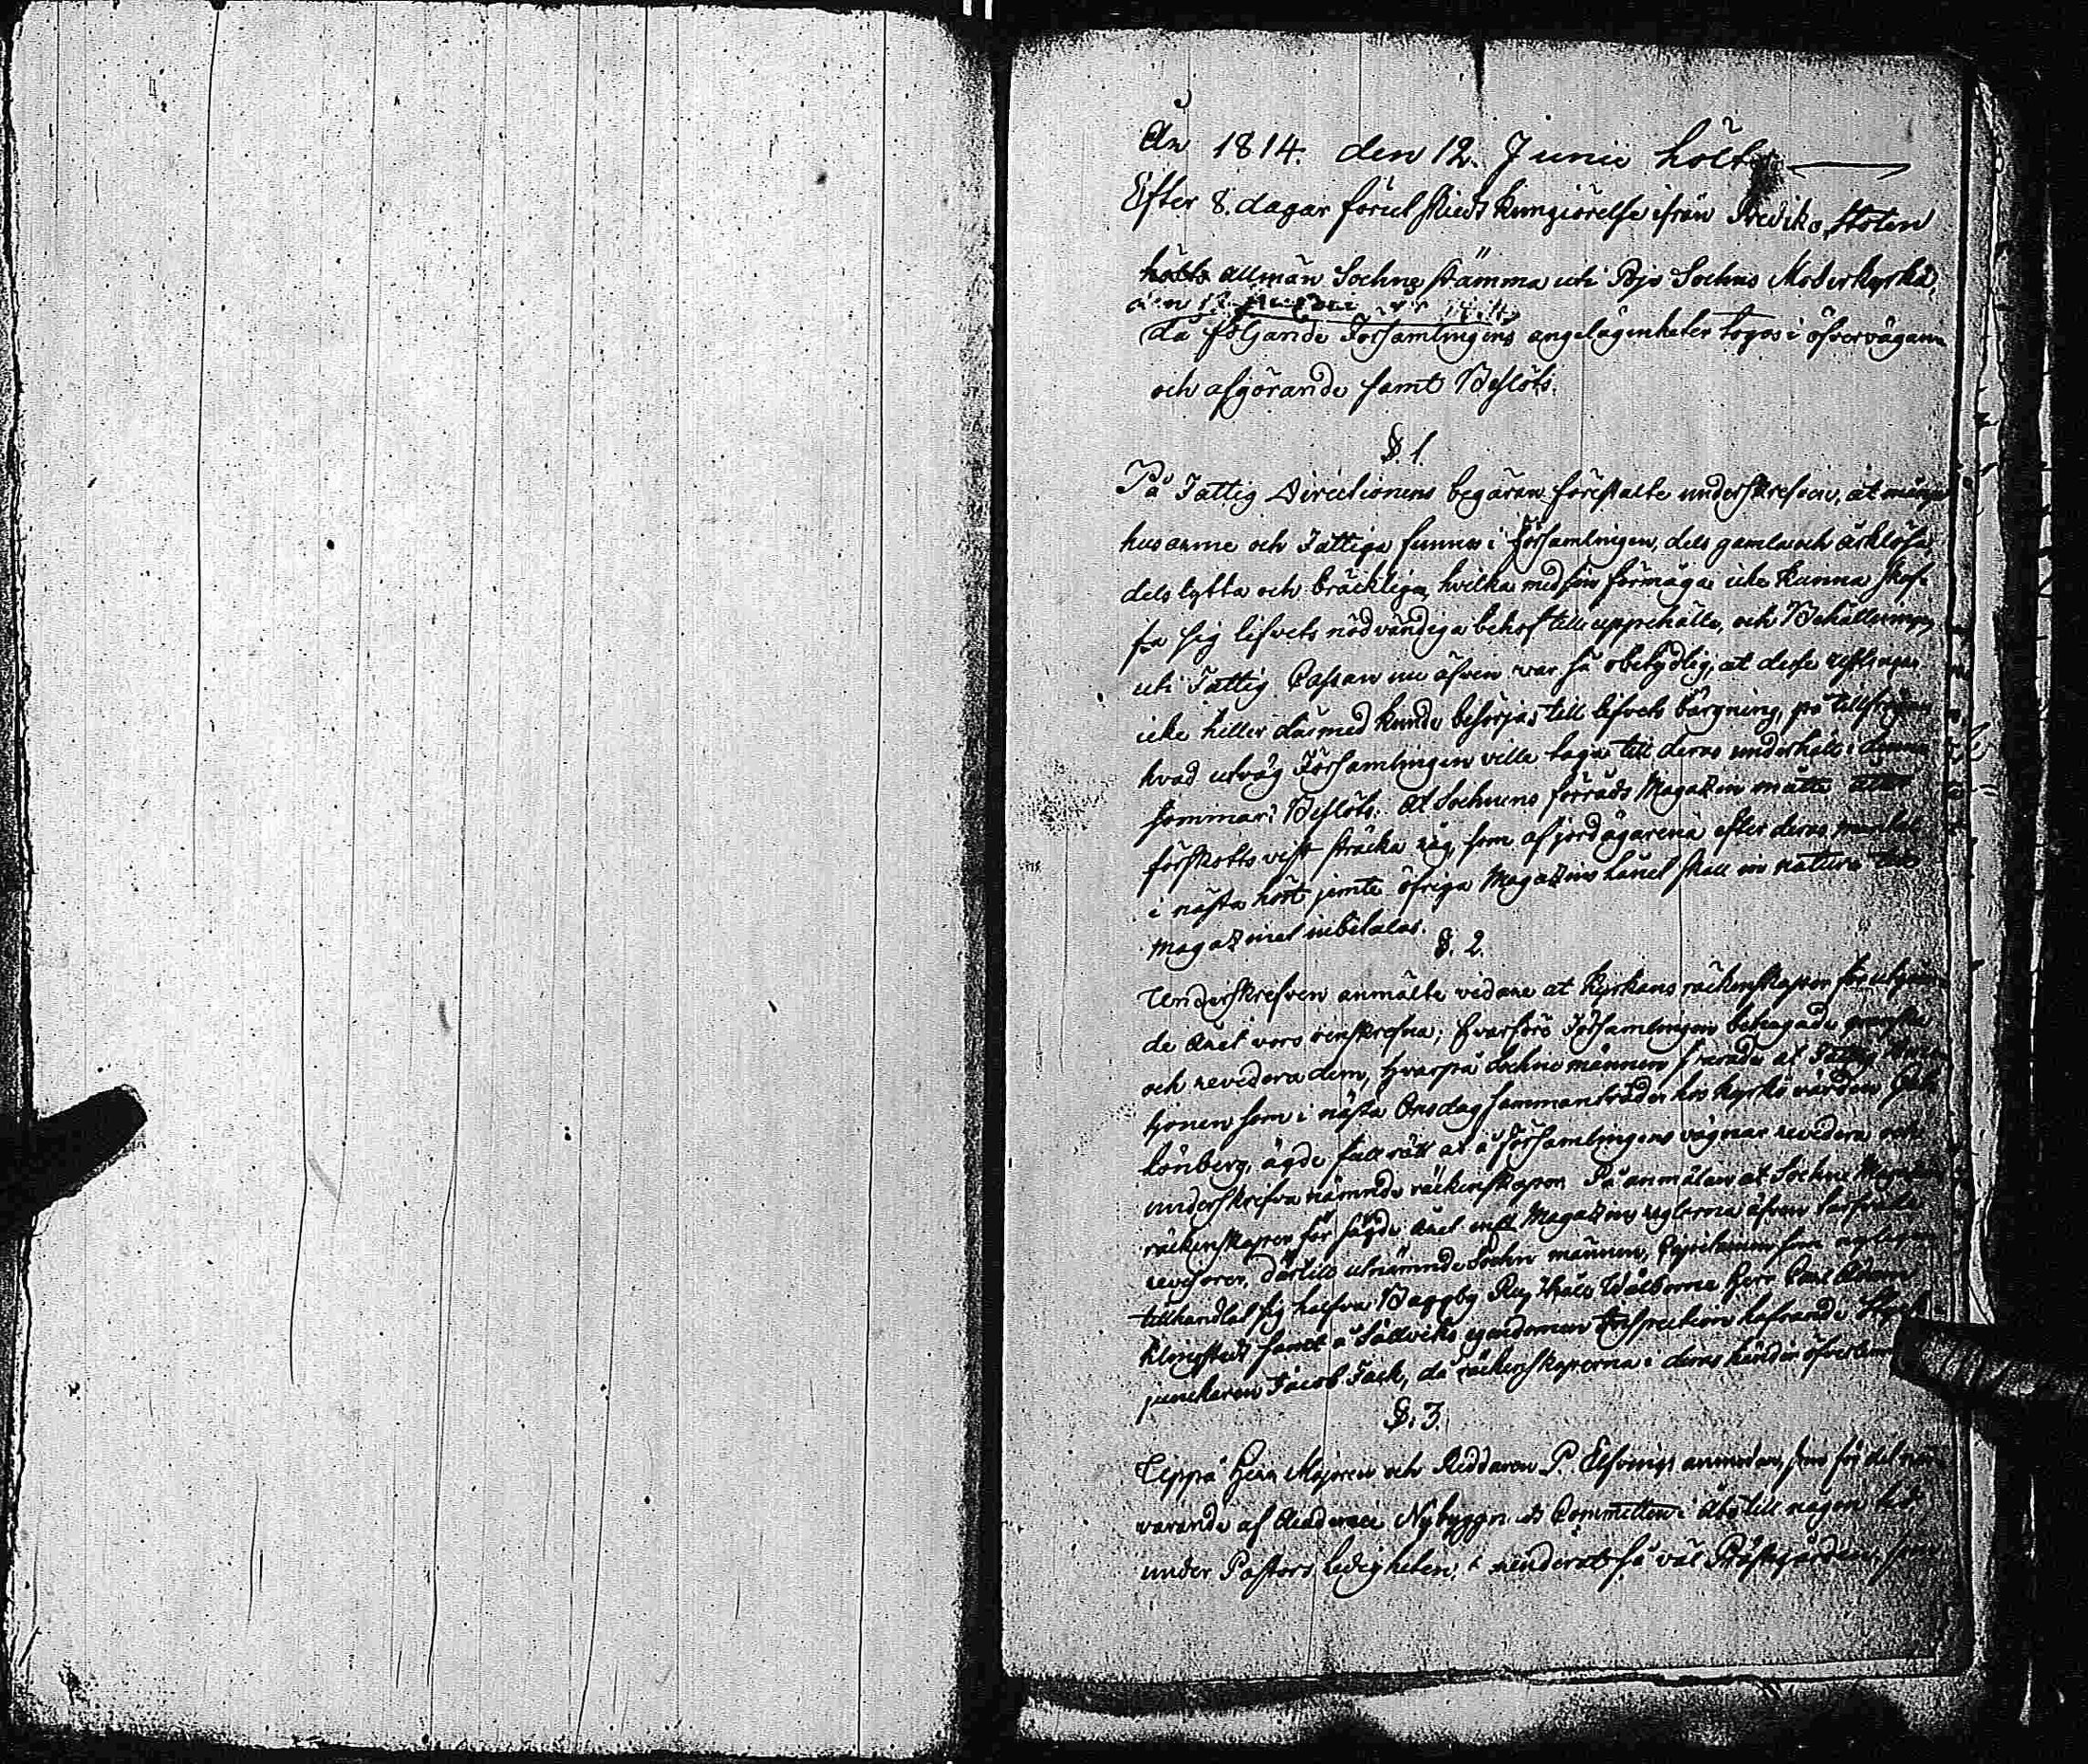 År 1814. den 12. Junii hölts
Efter 8. dagar förut skied kungiörelse ifrån Prediko stolen
hölts allmän Sochne stämma uti Pojo Sochns Moderkyrka,
då följande Församlingens angelägenheter togos i öfvervägan
och afgörande samt Beslöts.
§. 1.
På Fattig Directionens begäran förestalte underskrefven, at många
husarme och Fattiga funnos i Församlingen, dels gamla och orklösa,
dels lytta och bräckliga, hvilka med sin förmåga icke kunna skaf-
fa sig lifvets nödvändiga behof till uppehälle, och Behållningen
uti Fattig Cassan nu äfven var så obetydlig, at desse
icke heller därmed kunde besörjas till lifvets bärgning,
hvad utväg Församlingen ville taga till deras underhåll i denna
sommar? Beslöts: At Sochnens förråds Magazin måtte
förskotts vis sträcka råg, som af jordägarena efter deras mantal
i nästa höst jemte öfriga Magazins lånet skall in natura till
magazinet inbetalas.
§. 2.
Underskrefven anmälte vidare at Kyrkans räkenskaper för
de året voro renskrefna; hvarföre Församlingen behagade granska
och revidera dem, hvarpå Sochne männen svarade at Fattig
tionen som i nästa Onsdag sammanträder hos kyrko värden
Lönberg, ägde full rätt at å Församlingens vägnar revidera och
underskrifva nämnde räkenskaper. På anmälan at Sochne
räkenskapen för sagde året enl Magazins reglorna äfven
revisorer, därtill utnämnde Sochne männen, Capitainen som nyligen
tillhandlat sig halfva Baggby Välborne Herr Carl Adam
Klingstedt samt å Sällviks egendomen Inspection hafvande
junckaren Jacob Fack, då räkenskaperna i deras händer
§. 3.
Uppå Herr Majoren och Riddaren P. anmodan, som för det när-
varande af Academiae Nybyggn ds Committen i Åbo till någon tid
under Pastors ledigheten, så väl Prästgården, som